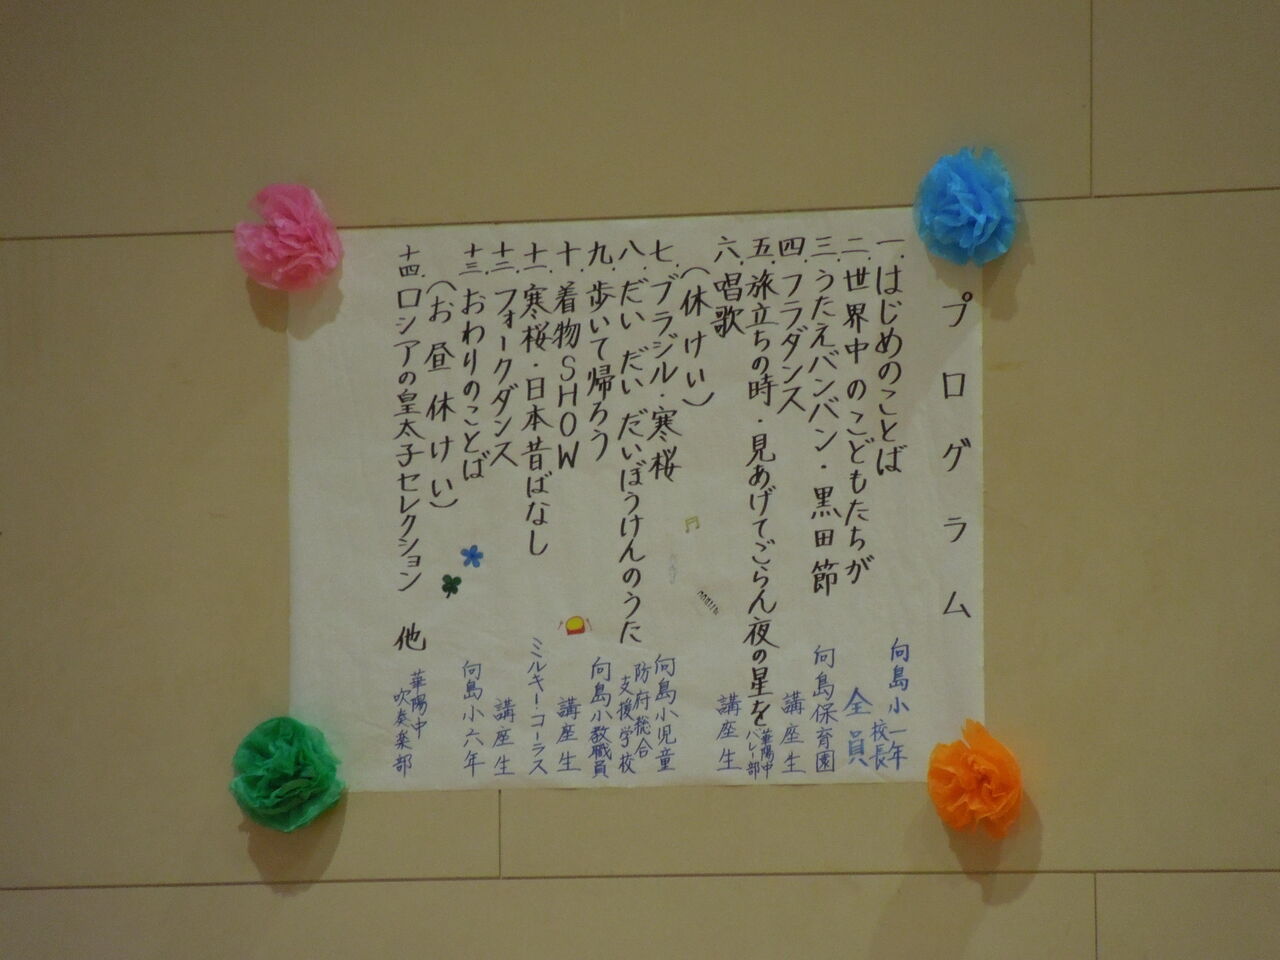 プログラム
一.はじめのことば 向島小 一年 校長
二.世界中のこどもたちが 全員
三.うたえバンバン・黒田節 向島保育園
四.フラダンス 講座生
五.旅立ちの時・見あげてごらん夜の星を 華陽中バレー部
六.唱歌 講座生
(休けい)
七.ブラジル・寒桜 向島小児童
八.だい だい だい だいぼうけんのうた 防府総合支援学校
九.歩いて帰ろう 向島小教職員
十.着物SHOW 講座生
十一.寒桜・日本昔ばなし ミルキーコーラス
十二.フォークダンス 講座生
十三.おわりのことば 向島小六年
(お昼休けい)
十四.ロシアの皇太子セレクション 他 華陽中吹奏楽部